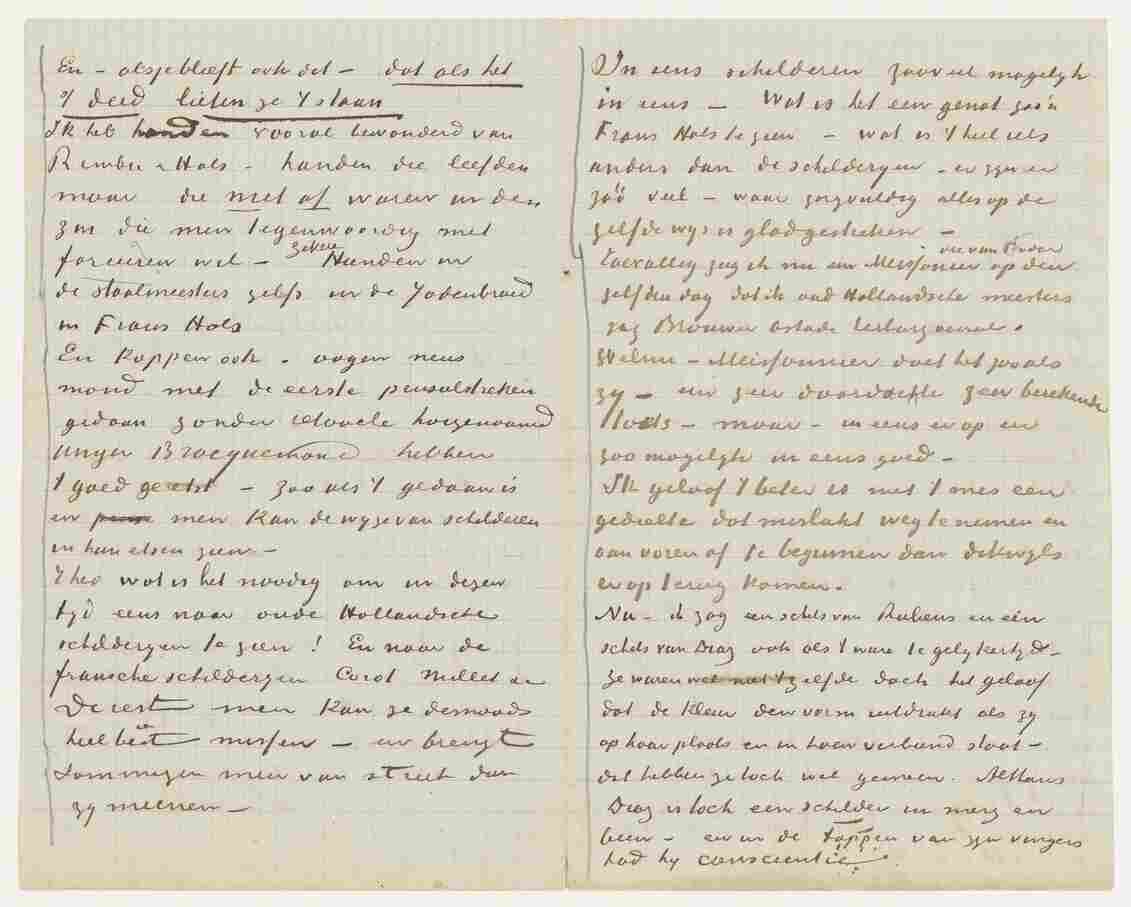 En – alsjeblieft ook dit – dat als het
't deed lieten ze 't staan
Ik heb handen vooral bewonderd van
Rembr. & Hals – handen die leefden
maar die niet af waren in den
zin die men tegenwoordig met
forceeren wil – zekere Handen in
de staalmeesters zelfs in de Jodenbruid
in Frans Hals
En koppen ook – oogen neus
mond met de eerste penseelstreken
gedaan zonder retouche hoegenaamd
Unger Bracquemond hebben
't goed geetst – zoo als 't gedaan is
en men kan de wijze van schilderen
in hun etsen zien –
Theo wat is het noodig om in dezen
tijd eens naar oude Hollandsche
schilderijen te zien! En naar de
fransche schilderijen Corot Millet &c
De rest men kan ze desnoods
heel best missen – en brengt
sommigen meer van streek dan
zij meenen –
In eens schilderen zooveel mogelijk
in eens – Wat is het een genot zoo'n
Frans Hals te zien – wat is 't heel iets
anders dan de schilderijen – er zijn er
zóó veel – waar zorgvuldig alles op de
zelfde wijs is gladgestreken –
Toevallig zag ik nu een Meissonier die van Fodor op den
zelfden dag dat ik oud Hollandsche meesters
zag Brouwer Ostade Terburg vooral.
Welnu – Meissonnier doet het zooals
zij – een zeer doordachte zeer berekende
Toets – maar – in eens er op en
zoo mogelijk in eens goed –
Ik geloof 't beter is met 't mes een
gedeelte dat mislukt weg te nemen en
van voren af te beginnen dan dikwijls
er op terug komen.
Nu – ik zag een schets van Rubens en eén
schets van Diaz ook als 't ware te gelijkertijd –
Ze waren wel niet 't zelfde doch het geloof
dat de kleur den vorm uitdrukt als zij
op haar plaats en in haar verband staat –
dat hebben ze toch wel gemeen. Althans
Diaz is toch een schilder in merg en
been – en in de toppen van zijn vingers
had hij conscientie.